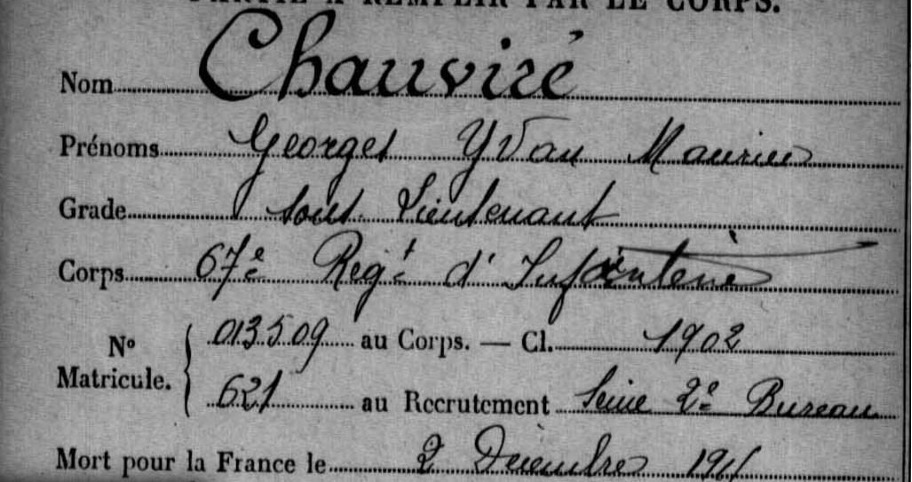 PARTIE A REMPLIR PAR LE CORPS.
Nom Chauviré
Prénoms Georges Yvan Maurice
Grade Sous Lieutenant
Corps 67e Regt d'Infanterie
No Matricule. 013509 au Corps. — Cl. 1902
621 au Recrutement Seine 2e Bureau
Mort pour la France le 2 Décembre